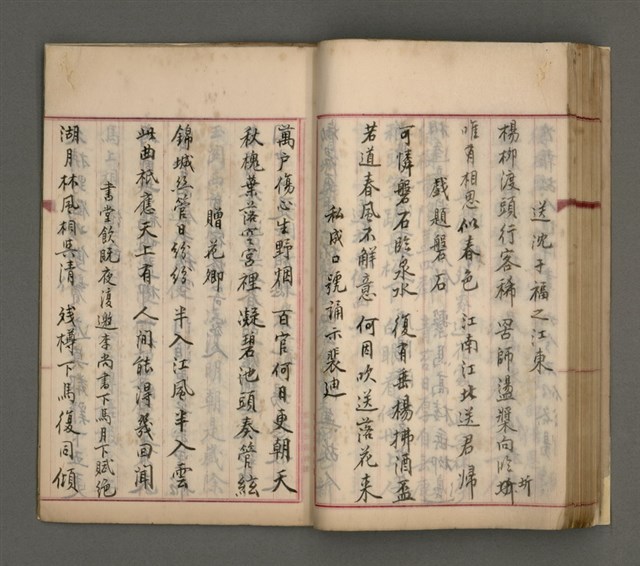 送沈子福之江東
楊柳渡頭行客稀 罟師盪槳向臨圻
圻
唯有相思似春色 江南江北送君歸
戲題磐石
可憐磐石臨泉水 復有垂楊拂酒盃
若道春風不解意 何因吹送落花來
私成口號誦示裴迪
萬户傷心生野烟 百官何日更朝天
秋槐葉落空宮裡 凝碧池頭奏管絃
贈花卿
錦城絲管日紛紛 半入江風半入雲
此曲祇應天上有 人間能得幾回聞
書堂飲既夜復邀李尚書下馬月下賦絕
湖月林風相與清 殘樽下馬復同傾